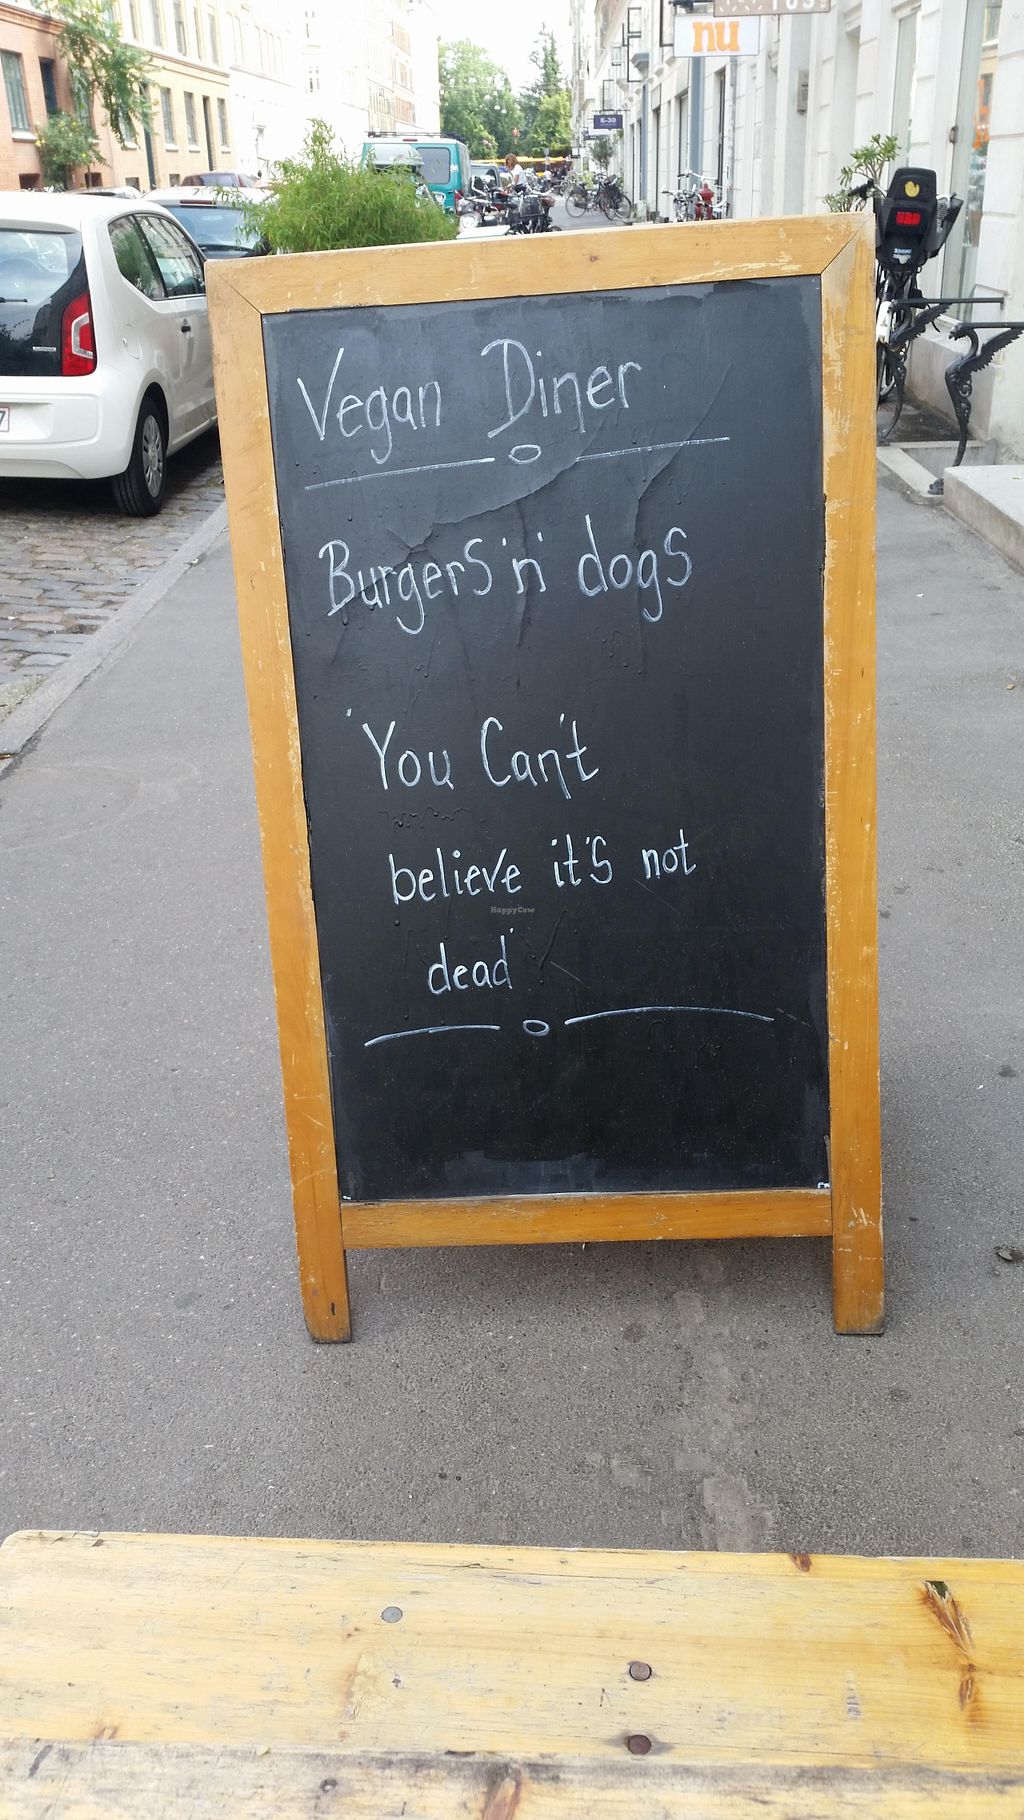 nu
K-30
Vegan Diner
Burgers 'n' dogs
'You Can't
believe it's not
dead'
HappyCow